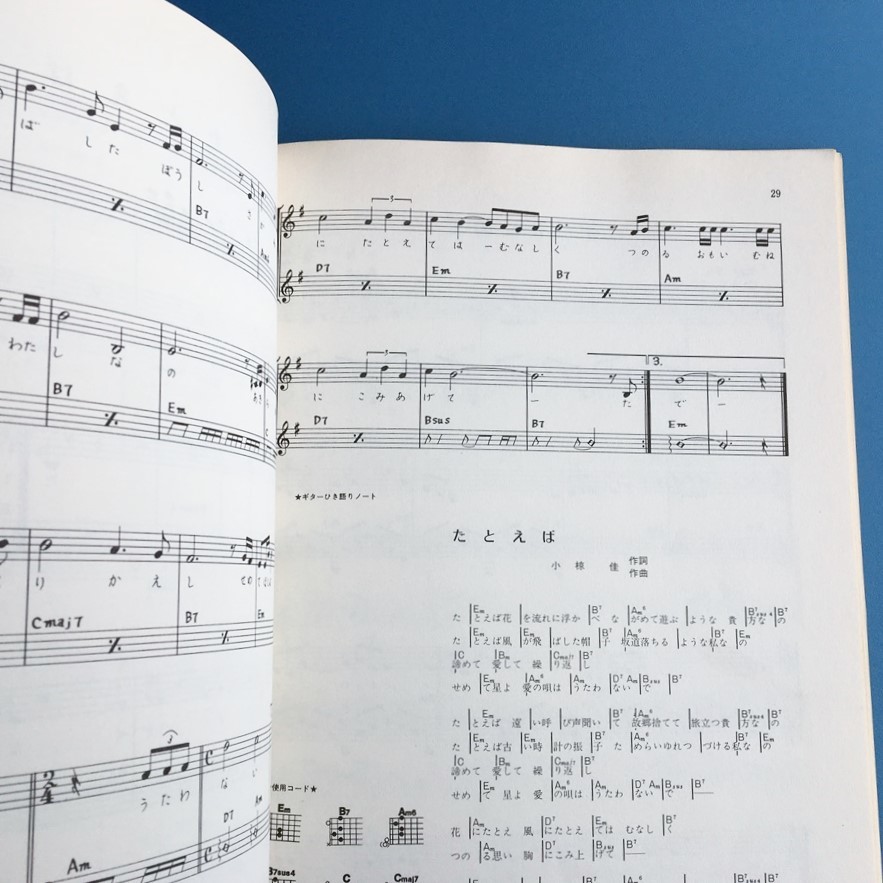 ば した ぼう し
B7
わた し な の
B7 Em
り か え し
Cmaj7 B7 Em
う た わ な い
Am D7 Am
29
に た と え て は ーむなし く つの る おもい むね
D7 Em B7 Am
3.
に こみ あ げ て ー た で ー
D7 Bsus B7 Em
★ギターひき語りノート
たとえば
小椋 佳 作詞
作曲
Em B7 Am6 B7sus4 B7
た とえば花 を流れに浮か べ な がめて遊ぶ ような 貴 方な の
Em Em B7 Am6 B7 Em
た とえば風 が飛 ばした帽 子 坂道落ちる ような私な の
C Bm Cmaj7 B7
諦めて 愛して 繰 り返 し
Em Am6 Am D7 Am Bsus B7
せめ て星よ 愛の唄は うたわ ない で
Em B7 Am6 B7sus4 B7
た とえば 遠 い呼 び声聞い て 故郷捨てて 旅立つ貴 方な の
Em Em B7 Am6 B7 Em
た とえば古 い時 計の振 子 た めらいゆれつ づける私な の
C Bm Cmaj7 B7
諦めて 愛して 繰 り返 し
Em Am6 Am D7 Am Bsus B7
せめ て 星よ 愛 の唄は うたわ ない で
Am D7 Em B7
花 にたとえ 風 にたとえ ては むなし く
Am D7 Bsus B7
つの る思い 胸 にこみ上 げて
使用コード★
Em B7 Am6
B7sus4 C Cmaj7